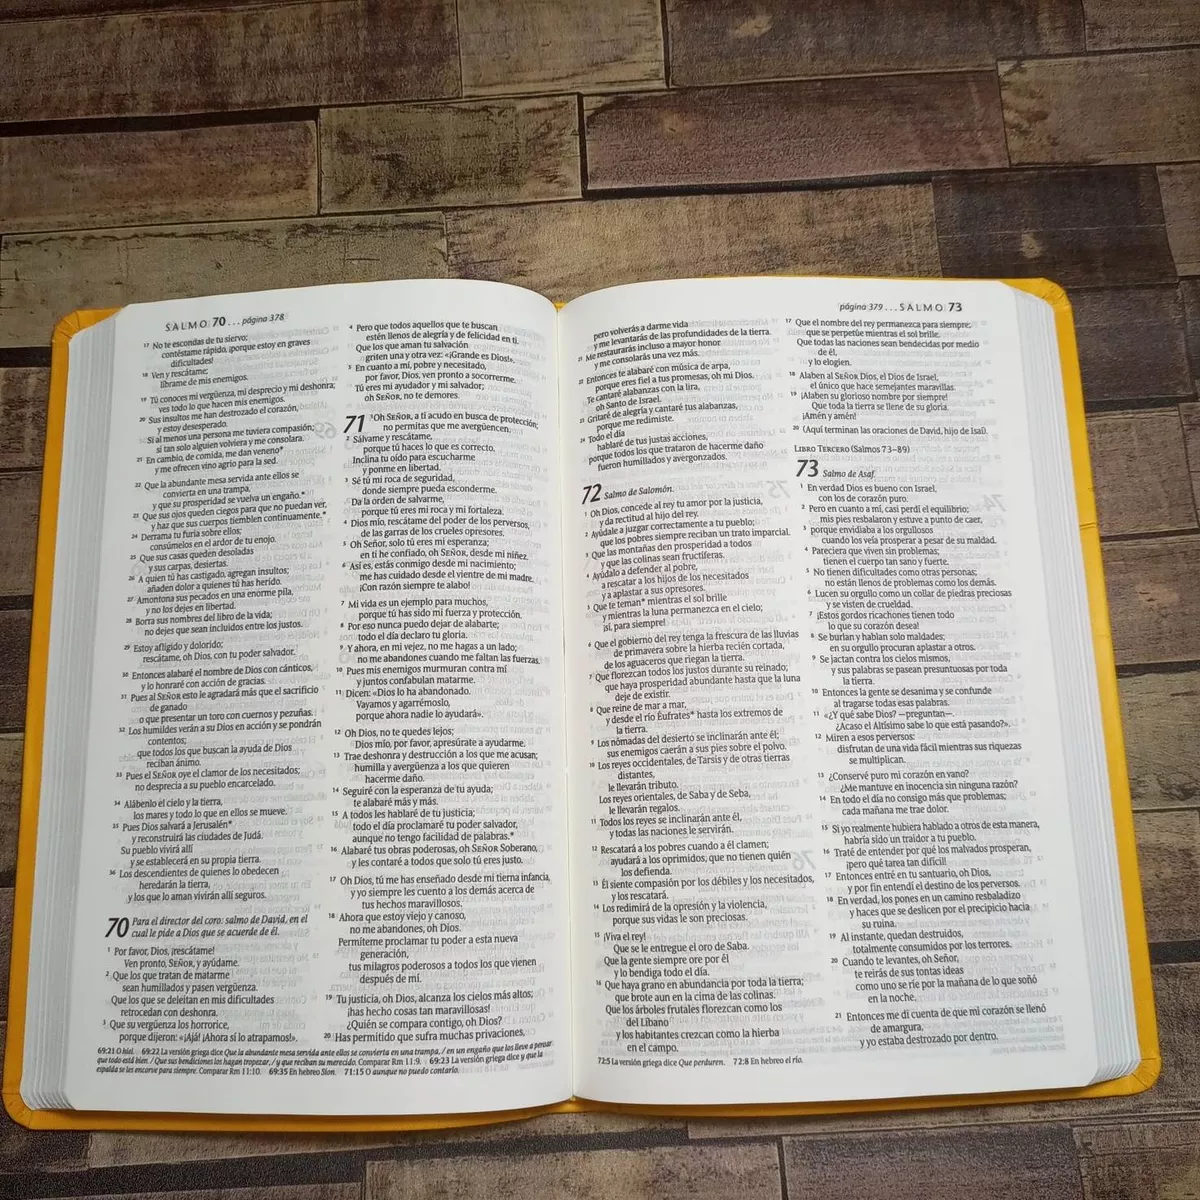 SALMO 70 . . . página 378
17 No te escondas de tu siervo;
contéstame rápido, ¡porque estoy en graves
dificultades!
18 Ven y rescátame;
líbrame de mis enemigos.
19 Tú conoces mi vergüenza, mi desprecio y mi deshonra;
ves todo lo que hacen mis enemigos.
20 Sus insultos me han destrozado el corazón,
y estoy desesperado.
Si al menos una persona me tuviera compasión;
si tan solo alguien volviera y me consolara.
21 En cambio, de comida, me dan veneno*
y me ofrecen vino agrio para la sed.
22 Que la abundante mesa servida ante ellos se
convierta en una trampa,
y que su prosperidad se vuelva un engaño.*
23 Que sus ojos queden ciegos para que no puedan ver,
y haz que sus cuerpos tiemblen continuamente.*
24 Derrama tu furia sobre ellos;
consúmelos en el ardor de tu enojo.
25 Que sus casas queden desoladas
y sus carpas, desiertas.
26 A quien tú has castigado, agregan insultos;
añaden dolor a quienes tú has herido.
27 Amontona sus pecados en una enorme pila,
y no los dejes en libertad.
28 Borra sus nombres del libro de la vida;
no dejes que sean incluidos entre los justos.
29 Estoy afligido y dolorido;
rescátame, oh Dios, con tu poder salvador.
30 Entonces alabaré el nombre de Dios con cánticos,
y lo honraré con acción de gracias.
31 Pues al SEÑOR esto le agradará más que el sacrificio
de ganado
o que presentar un toro con cuernos y pezuñas.
32 Los humildes verán a su Dios en acción y se pondrán
contentos;
que todos los que buscan la ayuda de Dios
reciban ánimo.
33 Pues el SEÑOR oye el clamor de los necesitados;
no desprecia a su pueblo encarcelado.
34 Alábenlo el cielo y la tierra,
los mares y todo lo que en ellos se mueve.
35 Pues Dios salvará a Jerusalén*
y reconstruirá las ciudades de Judá.
Su pueblo vivirá allí
y se establecerá en su propia tierra.
36 Los descendientes de quienes lo obedecen
heredarán la tierra,
y los que lo aman vivirán allí seguros.
70 Para el director del coro: salmo de David, en el
cual le pide a Dios que se acuerde de él.
1 Por favor, Dios, ¡rescátame!
Ven pronto, SEÑOR, y ayúdame.
2 Que los que tratan de matarme
sean humillados y pasen vergüenza.
Que los que se deleitan en mis dificultades
retrocedan con deshonra.
3 Que su vergüenza los horrorice,
porque dijeron: «¡Ajá! ¡Ahora sí lo atrapamos!».
4 Pero que todos aquellos que te buscan
estén llenos de alegría y de felicidad en ti.
Que los que aman tu salvación
griten una y otra vez: «¡Grande es Dios!».
5 En cuanto a mí, pobre y necesitado,
por favor, Dios, ven pronto a socorrerme.
Tú eres mi ayudador y mi salvador;
oh SEÑOR, no te demores.
71 1 Oh SEÑOR, a ti acudo en busca de protección;
no permitas que me avergüencen.
2 Sálvame y rescátame,
porque tú haces lo que es correcto.
Inclina tu oído para escucharme
y ponme en libertad.
3 Sé tú mi roca de seguridad,
donde siempre pueda esconderme.
Da la orden de salvarme,
porque tú eres mi roca y mi fortaleza.
4 Dios mío, rescátame del poder de los perversos,
de las garras de los crueles opresores.
5 Oh Señor, solo tú eres mi esperanza;
en ti he confiado, oh SEÑOR, desde mi niñez.
6 Así es, estás conmigo desde mi nacimiento;
me has cuidado desde el vientre de mi madre.
¡Con razón siempre te alabo!
7 Mi vida es un ejemplo para muchos,
porque tú has sido mi fuerza y protección.
8 Por eso nunca puedo dejar de alabarte;
todo el día declaro tu gloria.
9 Y ahora, en mi vejez, no me hagas a un lado;
no me abandones cuando me faltan las fuerzas.
10 Pues mis enemigos murmuran contra mí
y juntos confabulan matarme.
11 Dicen: «Dios lo ha abandonado.
Vayamos y agarrémoslo,
porque ahora nadie lo ayudará».
12 Oh Dios, no te quedes lejos;
Dios mío, por favor, apresúrate a ayudarme.
13 Trae deshonra y destrucción a los que me acusan;
humilla y avergüenza a los que quieren
hacerme daño.
14 Seguiré con la esperanza de tu ayuda;
te alabaré más y más.
15 A todos les hablaré de tu justicia;
todo el día proclamaré tu poder salvador,
aunque no tengo facilidad de palabras.*
16 Alabaré tus obras poderosas, oh SEÑOR Soberano,
y les contaré a todos que solo tú eres justo.
17 Oh Dios, tú me has enseñado desde mi tierna infancia,
y yo siempre les cuento a los demás acerca de
tus hechos maravillosos.
18 Ahora que estoy viejo y canoso,
no me abandones, oh Dios.
Permíteme proclamar tu poder a esta nueva
generación,
tus milagros poderosos a todos los que vienen
después de mí.
19 Tu justicia, oh Dios, alcanza los cielos más altos;
¡has hecho cosas tan maravillosas!
¿Quién se compara contigo, oh Dios?
20 Has permitido que sufra muchas privaciones,
69:21 O hiel. 69:22 La versión griega dice Que la abundante mesa servida ante ellos se convierta en una trampa, / en un engaño que los lleve a pensar
que todo está bien. / Que sus bendiciones los hagan tropezar, / y que reciban su merecido. Comparar Rm 11:9. 69:23 La versión griega dice y que la
espalda se les encorve para siempre. Comparar Rm 11:10. 69:35 En hebreo Sion. 71:15 O aunque no puedo contarlo.
página 379 . . . SALMO 73
pero volverás a darme vida
y me levantarás de las profundidades de la tierra.
21 Me restaurarás incluso a mayor honor
y me consolarás una vez más.
22 Entonces te alabaré con música de arpa,
porque eres fiel a tus promesas, oh mi Dios.
Te cantaré alabanzas con la lira,
oh Santo de Israel.
23 Gritaré de alegría y cantaré tus alabanzas,
porque me redimiste.
24 Todo el día
hablaré de tus justas acciones,
porque todos los que trataron de hacerme daño
fueron humillados y avergonzados.
72 Salmo de Salomón.
1 Oh Dios, concede al rey tu amor por la justicia,
y da rectitud al hijo del rey.
2 Ayúdale a juzgar correctamente a tu pueblo;
que los pobres siempre reciban un trato imparcial.
3 Que las montañas den prosperidad a todos
y que las colinas sean fructíferas.
4 Ayúdalo a defender al pobre,
a rescatar a los hijos de los necesitados
y a aplastar a sus opresores.
5 Que te teman* mientras el sol brille
y mientras la luna permanezca en el cielo;
¡sí, para siempre!
6 Que el gobierno del rey tenga la frescura de las lluvias
de primavera sobre la hierba recién cortada,
de los aguaceros que riegan la tierra.
7 Que florezcan todos los justos durante su reinado;
que haya prosperidad abundante hasta que la luna
deje de existir.
8 Que reine de mar a mar,
y desde el río Éufrates* hasta los extremos de
la tierra.
9 Los nómadas del desierto se inclinarán ante él;
sus enemigos caerán a sus pies sobre el polvo.
10 Los reyes occidentales, de Tarsis y de otras tierras
distantes,
le llevarán tributo.
Los reyes orientales, de Saba y de Seba,
le llevarán regalos.
11 Todos los reyes se inclinarán ante él,
y todas las naciones le servirán.
12 Rescatará a los pobres cuando a él clamen;
ayudará a los oprimidos, que no tienen quién
los defienda.
13 Él siente compasión por los débiles y los necesitados,
y los rescatará.
14 Los redimirá de la opresión y la violencia,
porque sus vidas le son preciosas.
15 ¡Viva el rey!
Que se le entregue el oro de Saba.
Que la gente siempre ore por él
y lo bendiga todo el día.
16 Que haya grano en abundancia por toda la tierra;
que brote aun en la cima de las colinas.
Que los árboles frutales florezcan como los
del Líbano
y los habitantes crezcan como la hierba
en el campo.
17 Que el nombre del rey permanezca para siempre;
que se perpetúe mientras el sol brille.
Que todas las naciones sean bendecidas por medio
de él,
y lo elogien.
18 Alaben al SEÑOR Dios, el Dios de Israel,
el único que hace semejantes maravillas.
19 ¡Alaben su glorioso nombre por siempre!
Que toda la tierra se llene de su gloria.
¡Amén y amén!
20 (Aquí terminan las oraciones de David, hijo de Isaí).
LIBRO TERCERO (Salmos 73–89)
73 Salmo de Asaf.
1 En verdad Dios es bueno con Israel,
con los de corazón puro.
2 Pero en cuanto a mí, casi perdí el equilibrio;
mis pies resbalaron y estuve a punto de caer,
3 porque envidiaba a los orgullosos
cuando los veía prosperar a pesar de su maldad.
4 Pareciera que viven sin problemas;
tienen el cuerpo tan sano y fuerte.
5 No tienen dificultades como otras personas;
no están llenos de problemas como los demás.
6 Lucen su orgullo como un collar de piedras preciosas
y se visten de crueldad.
7 ¡Estos gordos ricachones tienen todo
lo que su corazón desea!
8 Se burlan y hablan solo maldades;
en su orgullo procuran aplastar a otros.
9 Se jactan contra los cielos mismos,
y sus palabras se pasean presuntuosas por toda
la tierra.
10 Entonces la gente se desanima y se confunde
al tragarse todas esas palabras.
11 «¿Y qué sabe Dios? —preguntan—.
¿Acaso el Altísimo sabe lo que está pasando?».
12 Miren a esos perversos:
disfrutan de una vida fácil mientras sus riquezas
se multiplican.
13 ¿Conservé puro mi corazón en vano?
¿Me mantuve en inocencia sin ninguna razón?
14 En todo el día no consigo más que problemas;
cada mañana me trae dolor.
15 Si yo realmente hubiera hablado a otros de esta manera,
habría sido un traidor a tu pueblo.
16 Traté de entender por qué los malvados prosperan,
¡pero qué tarea tan difícil!
17 Entonces entré en tu santuario, oh Dios,
y por fin entendí el destino de los perversos.
18 En verdad, los pones en un camino resbaladizo
y haces que se deslicen por el precipicio hacia
su ruina.
19 Al instante, quedan destruidos,
totalmente consumidos por los terrores.
20 Cuando te levantes, oh Señor,
te reirás de sus tontas ideas
como uno se ríe por la mañana de lo que soñó
en la noche.
21 Entonces me di cuenta de que mi corazón se llenó
de amargura,
y yo estaba destrozado por dentro.
72:5 La versión griega dice Que perduren. 72:8 En hebreo el río.